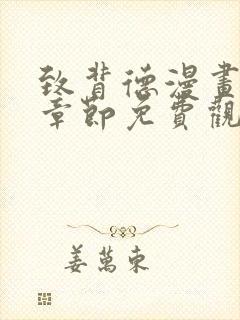 致背德漫畫
章節免費觀
姜萬東